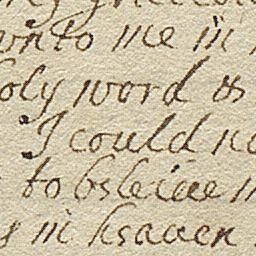 vnto me in
holy word &
I could no
to beleiue m
& in heauen